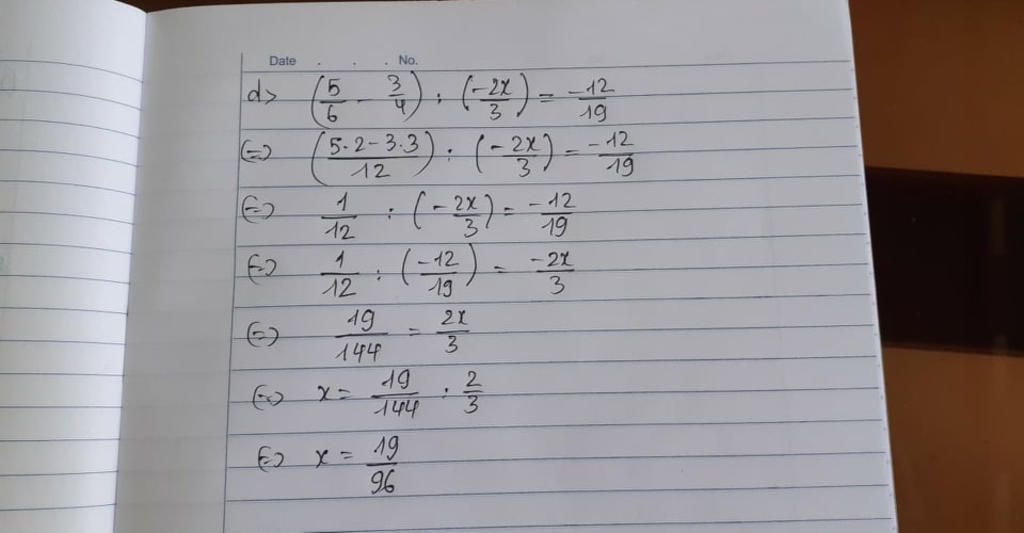 Date . . . No.
d> (5/6 - 3/4) : (-2x/3) = -12/19
(=) ((5·2-3·3)/12) : (-2x/3) = -12/19
(=) 1/12 : (-2x/3) = -12/19
(=) 1/12 : (-12/19) = -2x/3
(=) 19/144 = 2x/3
(=) x = 19/144 : 2/3
(=) x = 19/96